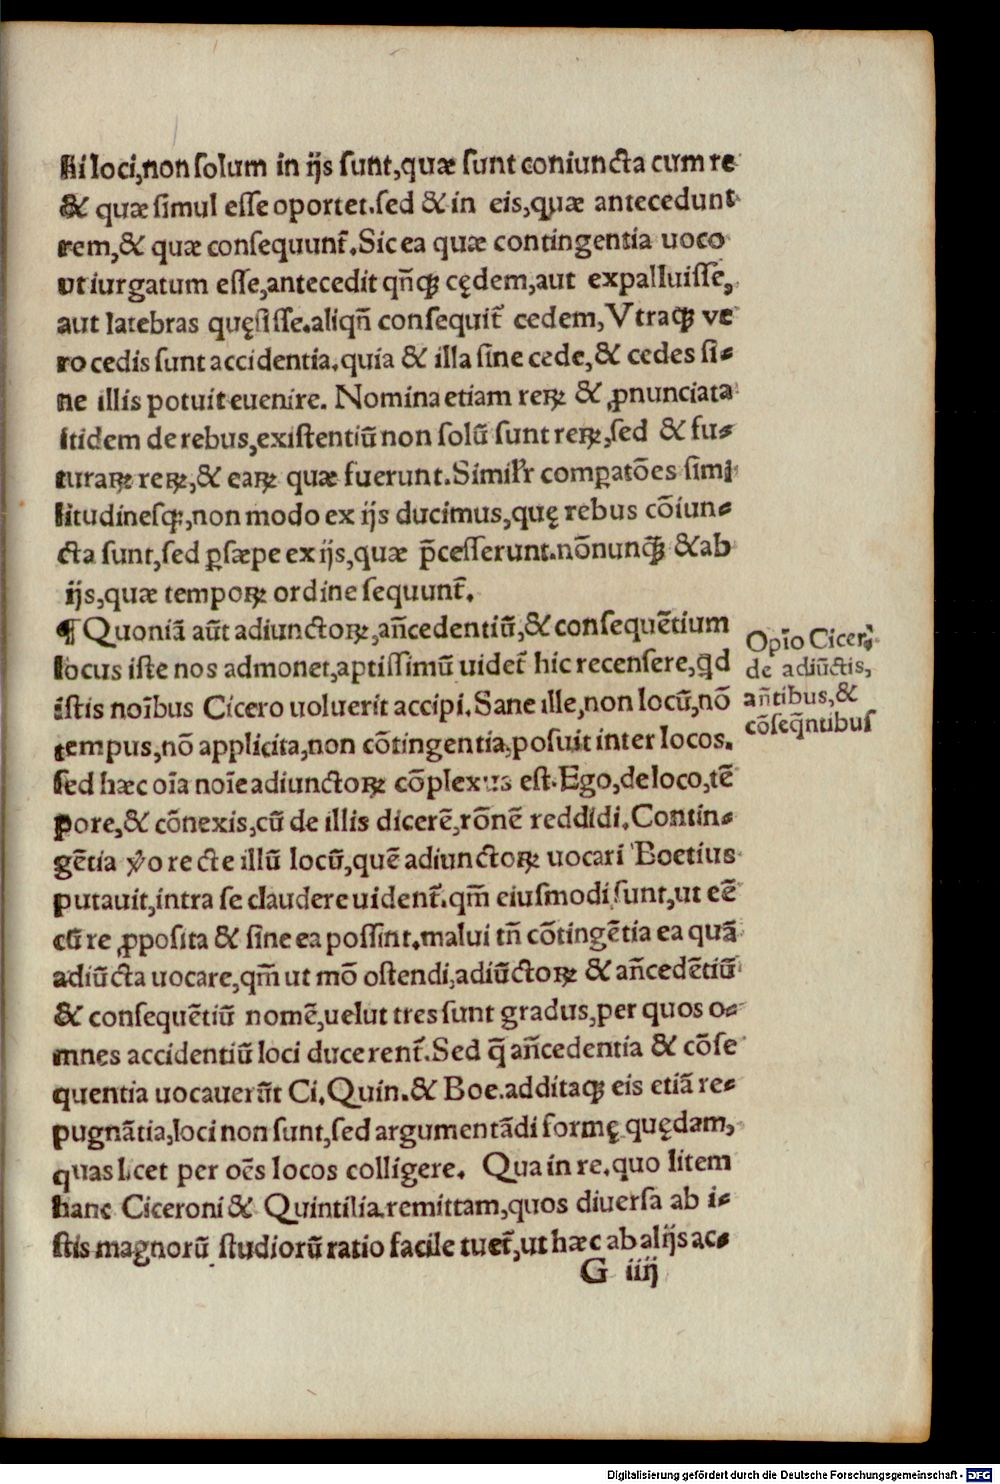 hi loci,non solum in ijs sunt,quæ sunt coniuncta cum re
& quæ simul esse oportet.sed & in eis,quæ antecedunt
rem,& quæ consequunt᷑.Sic ea quæ contingentia uoco
vt iurgatum esse,antecedit qñqꝫ cędem,aut expalluisse,
aut latebras quęsisse.aliqñ consequit᷑ cedem,Vtraqꝫ ve
ro cedis sunt accidentia.quia & illa sine cede,& cedes si-
ne illis potuit euenire. Nomina etiam reꝝ & ꝓnunciata
itidem de rebus,existentiũ non solũ sunt reꝝ,sed & fu-
turaꝝ reꝝ,& eaꝝ quæ fuerunt.Simil'r comꝑatões simi
litudinesqꝫ,non modo ex ijs ducimus,quę rebus cõiun-
cta sunt,sed ꝑsæpe ex ijs,quæ p̃cesserunt.nõnunqꝫ̃ & ab
ijs,quæ tempoꝝ ordine sequunt᷑.
¶ Quoniã aũt adiunctoꝝ,añcedentiũ,& consequẽtium
locus iste nos admonet,aptissimũ uidet᷑ hic recensere,qd̃
istis noĩbus Cicero uoluerit accipi.Sane ille,non locũ,nõ
tempus,nõ applicita,non cõtingentia,posuit inter locos.
sed hæc oĩa noĩe adiunctoꝝ cõplexus est.Ego,de loco,tẽ
pore,& cõnexis,cũ de illis dicerẽ,rõnẽ reddidi.Contin-
gẽtia ṽo recte illũ locũ,quẽ adiunctoꝝ uocari Boetius
putauit,intra se claudere uident᷑.qm̃ eiusmodi sunt,ut eẽ
cũ re ꝓposita & sine ea possint.malui tñ cõtingẽtia ea quã
adiũcta uocare,qm̃ ut mõ ostendi,adiũctoꝝ & añcedẽtiũ
& consequẽtiũ nomẽ,uelut tres sunt gradus,per quos o-
mnes accidentiũ loci ducerent᷑.Sed q̃ añcedentia & cõse
quentia uocauerũt Ci.Quin.& Boe.additaqꝫ eis etiã re-
pugnãtia,loci non sunt,sed argumentãdi formę quędam,
quas licet per oẽs locos colligere. Qua in re.quo litem
hanc Ciceroni & Quintilia.remittam,quos diuersa ab i-
stis magnorũ studiorũ ratio facile tuet᷑,ut hæc ab alijs ac-
G iiij
Opĩo Cicer,
de adiũctis,
añtibus,&
cõseq̃ntibus
Digitalisierung gefördert durch die Deutsche Forschungsgemeinschaft - DFG